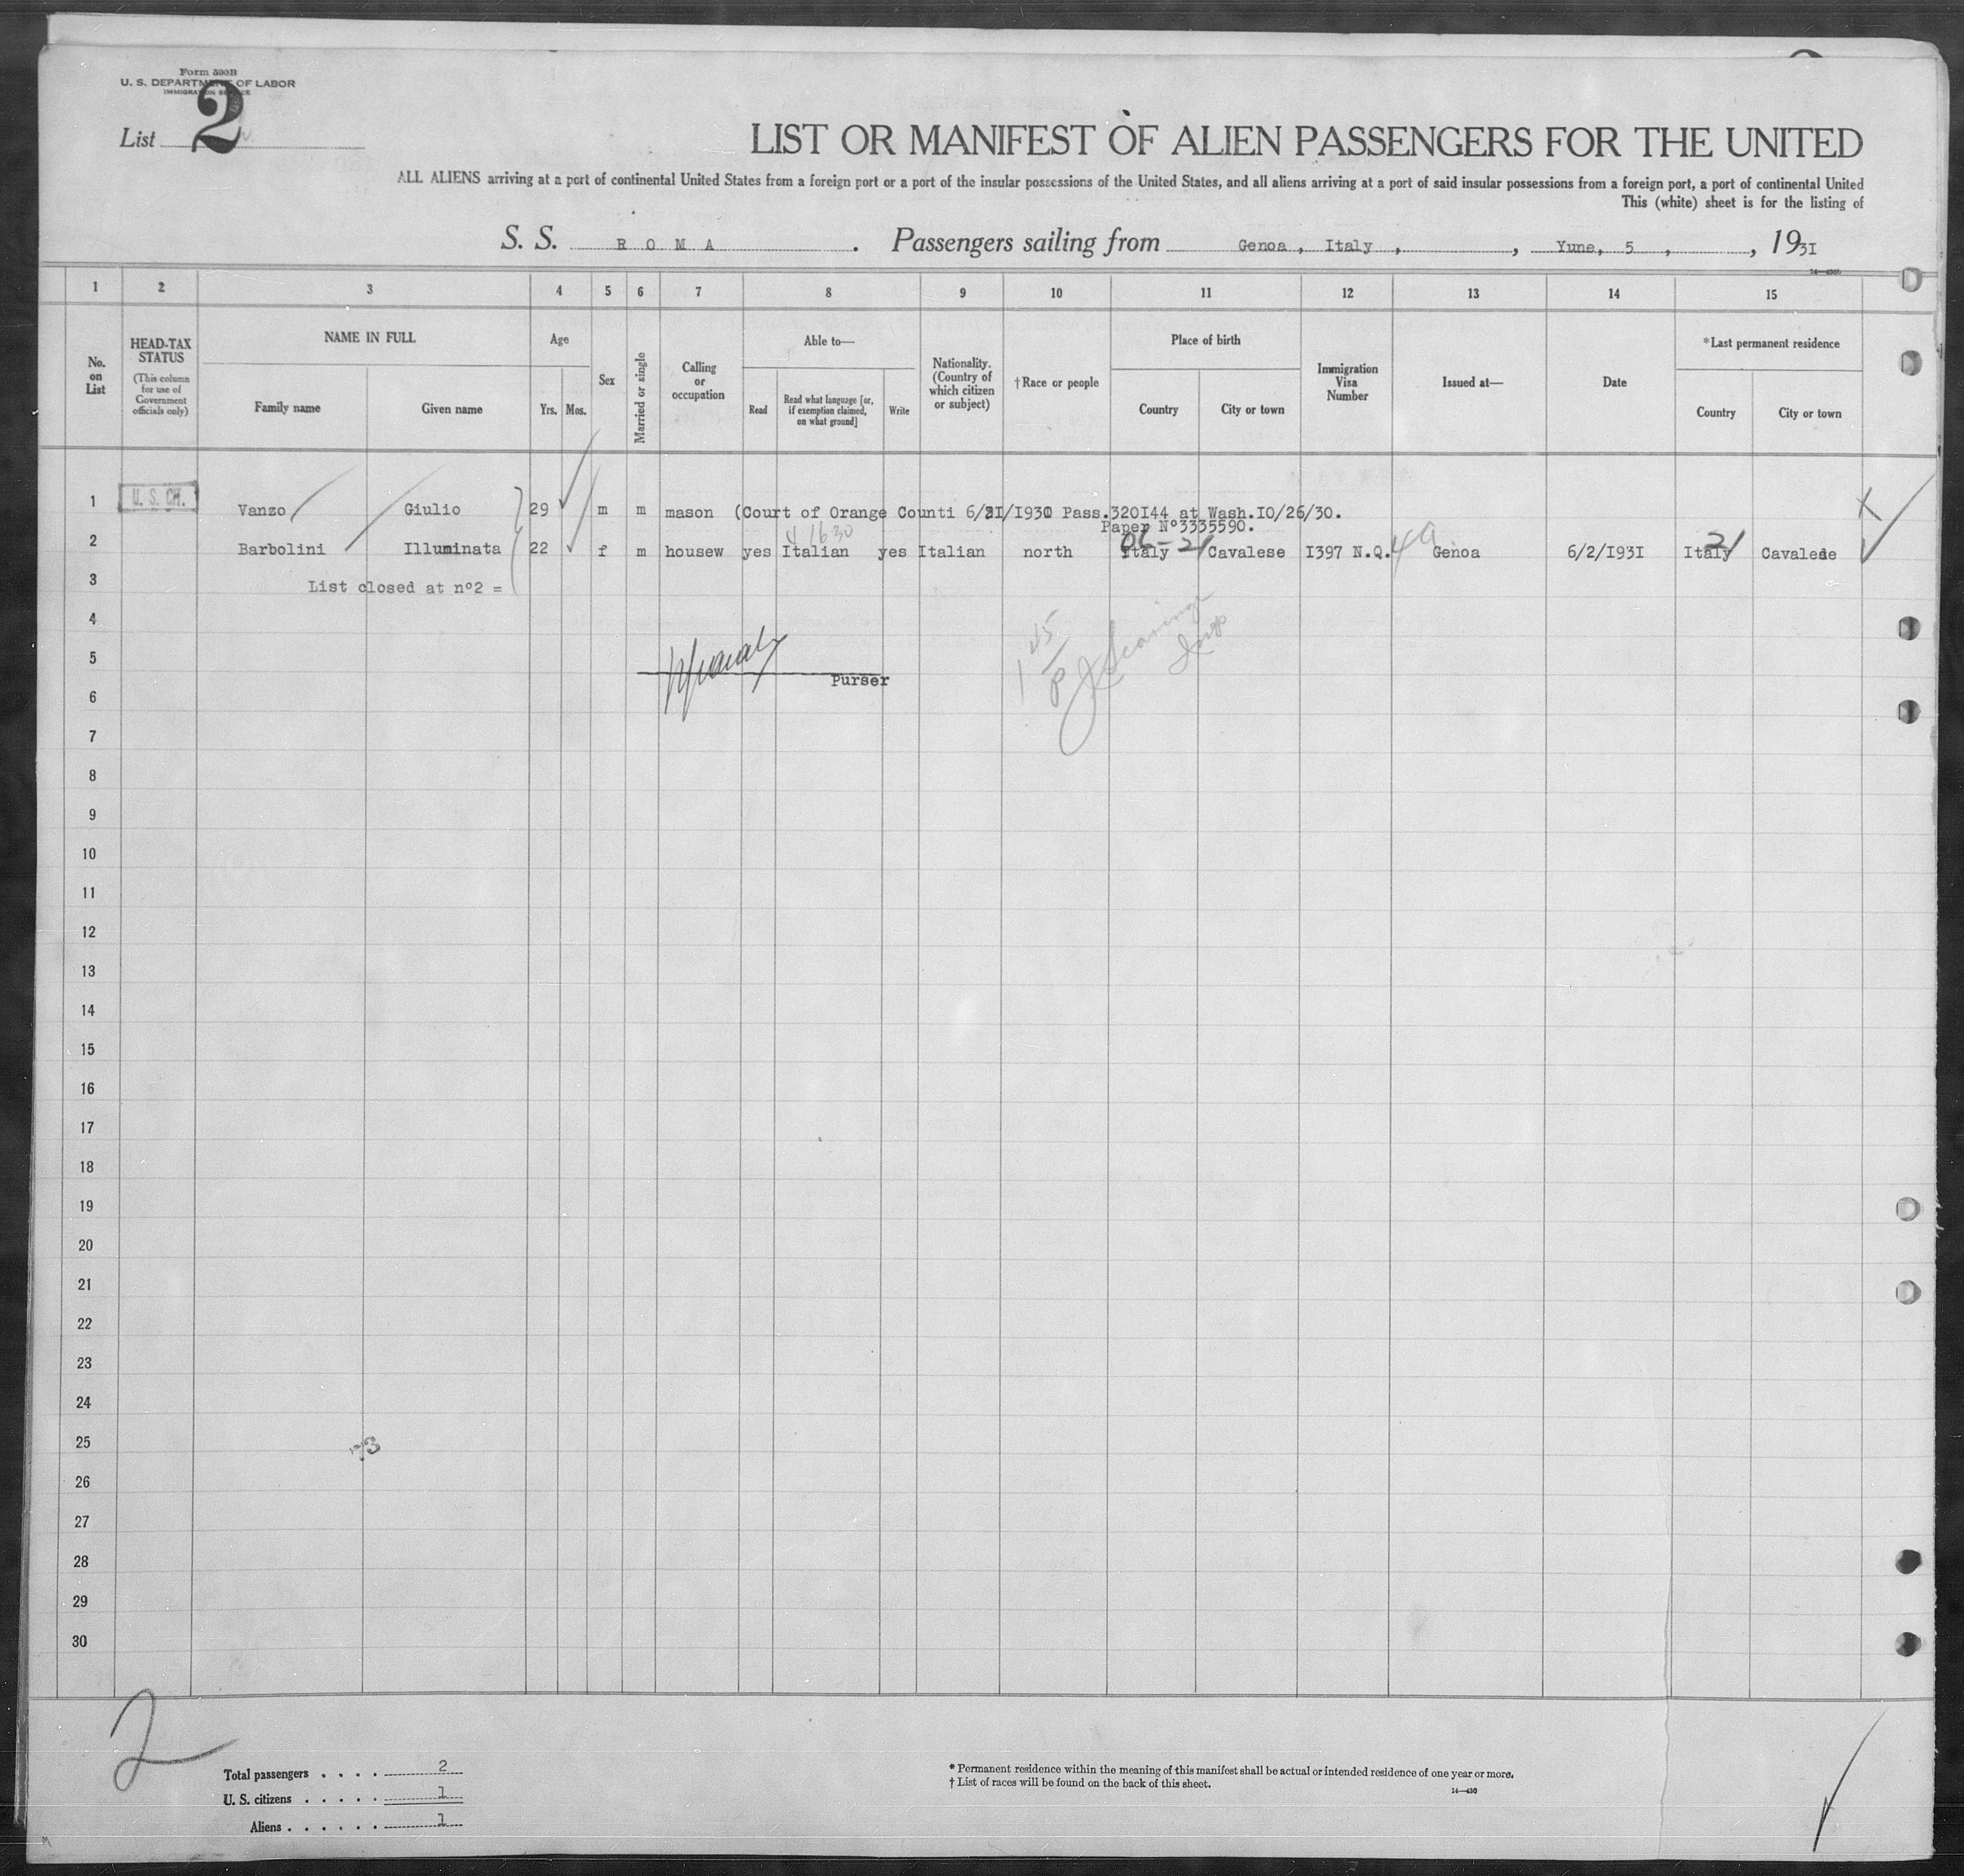 Form 500B
U. S. DEPARTMENT OF LABOR
IMMIGRATION SERVICE
List 2
LIST OR MANIFEST OF ALIEN PASSENGERS FOR THE UNITED
ALL ALIENS arriving at a port of continental United States from a foreign port or a port of the insular possessions of the United States, and all aliens arriving at a port of said insular possessions from a foreign port, a port of continental United
This (white) sheet is for the listing of
S. S. R O M A . Passengers sailing from Genoa, Italy, , Yune, 5 , , 1931
1 2 3 4 5 6 7 8 9 10 11 12 13 14 15
No. on List
HEAD-TAX STATUS (This column for use of Government officials only)
NAME IN FULL
Family name Given name
Age
Yrs. Mos.
Sex
Married or single
Calling or occupation
Able to—
Read Read what language [or, if exemption claimed, on what ground] Write
Nationality. (Country of which citizen or subject)
†Race or people
Place of birth
Country City or town
Immigration Visa Number
Issued at—
Date
*Last permanent residence
Country City or town
1 U. S. CH. Vanzo Giulio 29 m m mason (Court of Orange Counti 6/21/1930 Pass.320I44 at Wash.IO/26/30.
Paper Nº3335590.
2 Barbolini Illuminata 22 f m housew yes Italian yes Italian north Italy Cavalese I397 N.Q. Genoa 6/2/I93I Italy 21 Cavalede
3 List closed at nº2 =
4
5
Purser
6
7
8
9
10
11
12
13
14
15
16
17
18
19
20
21
22
23
24
25
26
27
28
29
30
2
Total passengers . . . . 2
U. S. citizens . . . . . 1
Aliens . . . . . . 1
* Permanent residence within the meaning of this manifest shall be actual or intended residence of one year or more.
† List of races will be found on the back of this sheet.
14—430